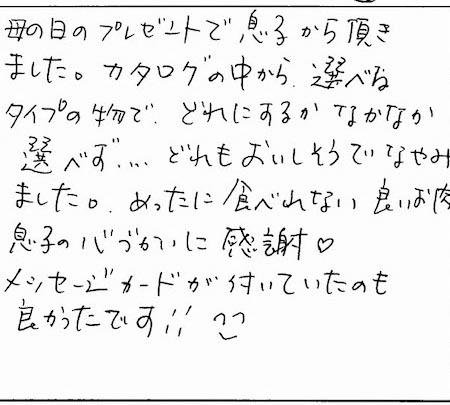 母の日のプレゼントで息子から頂き
ました。カタログの中から、選べる
タイプの物で、どれにするかなかなか
選べず、… どれもおいしそうでなやみ
ました。めったに食べれない良いお肉
息子の心づかいに感謝♡
メッセージカードが付いていたのも
良かったです!!